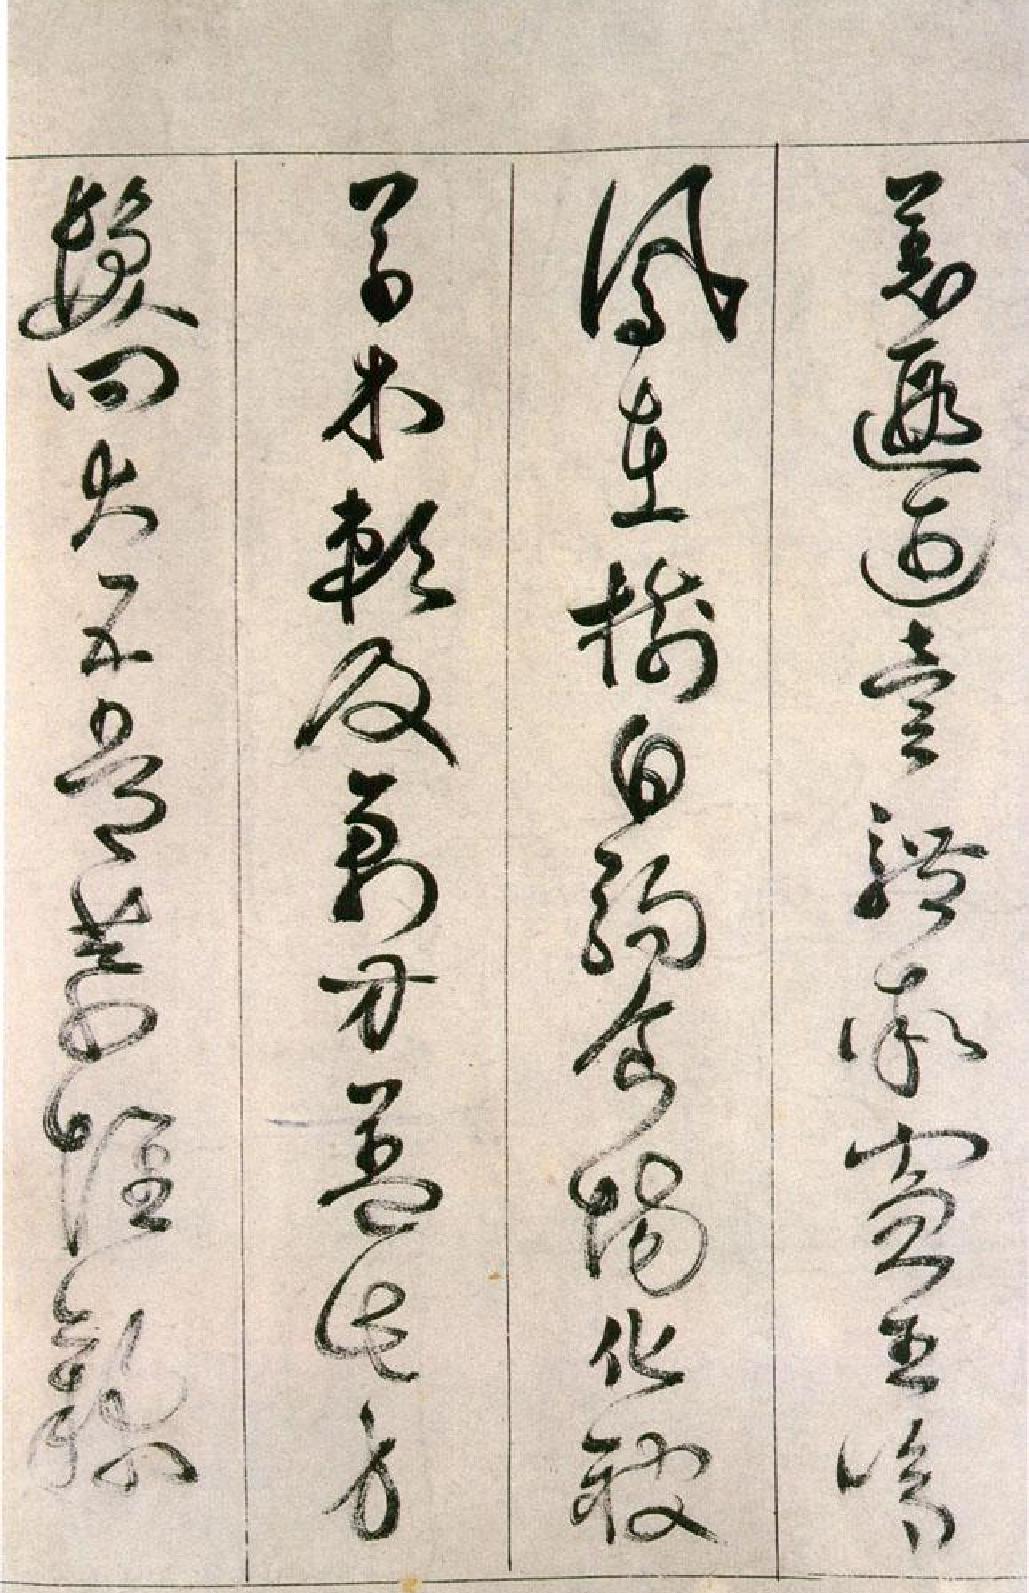 羌遐邇壹體率賓王鳴
鳳在樹白駒食場化被
草木賴及萬方蓋此身
髮四大五常恭惟鞠